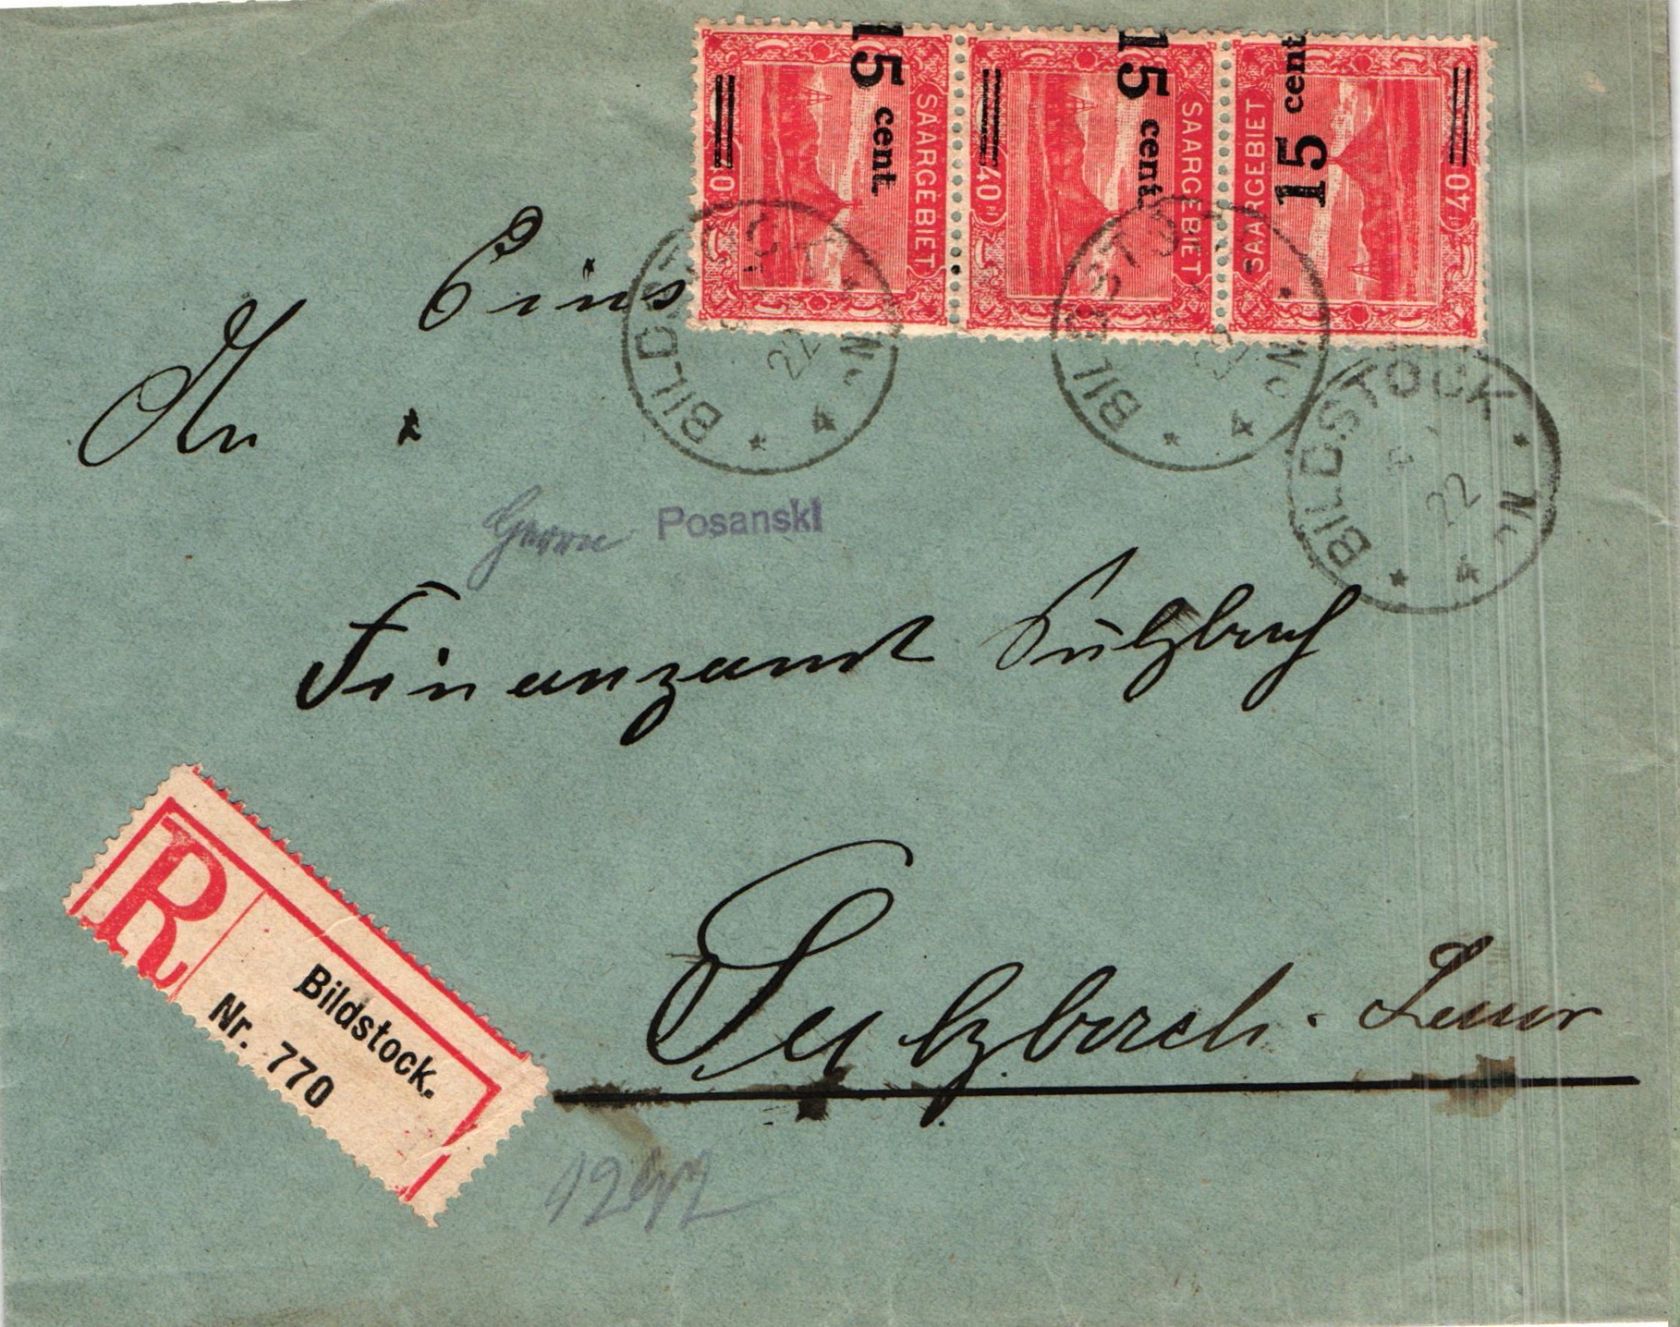 15 cent.
SAARGEBIET
40
15 cent.
SAARGEBIET
40
15 cent
SAARGEBIET
40
BILDSTOCK
22
4
BILDSTOCK
22
4
BILDSTOCK
22
4
Eins
An
Herrn Posanski
Finanzamt Sulzbach
Sulzbach.
R
Bildstock.
Nr. 770